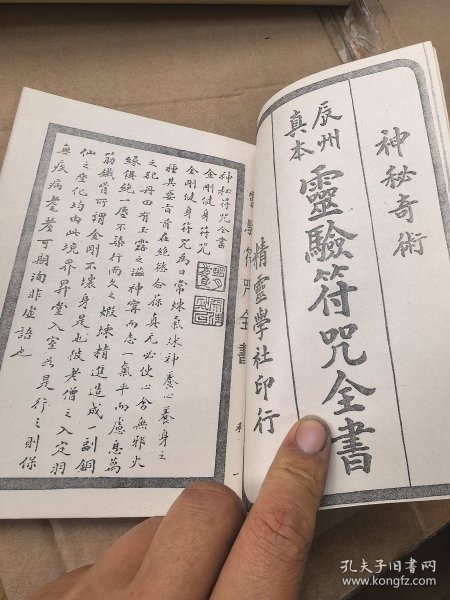 神秘奇術
辰州
真本
靈驗符咒全書
精靈學社印行
神秘符咒全書
金剛健身符咒
金剛健身符咒為日常煉氣球神養心養身之
種其要旨首在絕慾命葆真元必使心舍無邪火
之犯丹田有玉露之溢神寧而志一氣平而慮息萬
緣俱絕一塵不染行而久之煅煉精進造成一副銅
筋鐵骨所謂金剛不壞身是也彼老僧之入定羽
仙之坐化均由此境界昇堂入室如是行之則保
無疾病耄耋可期洵非虛語也
符咒全書
一
孔夫子旧书网
www.kongfz.com